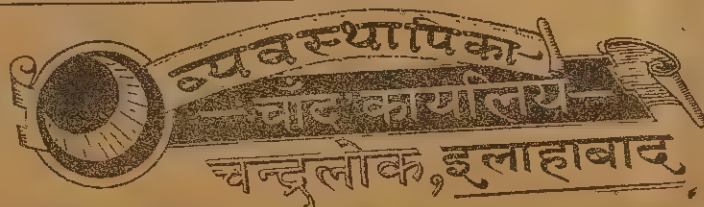 व्यवस्थापिका
—चाँद कार्यालय—
चन्द्रलोक, इलाहाबाद